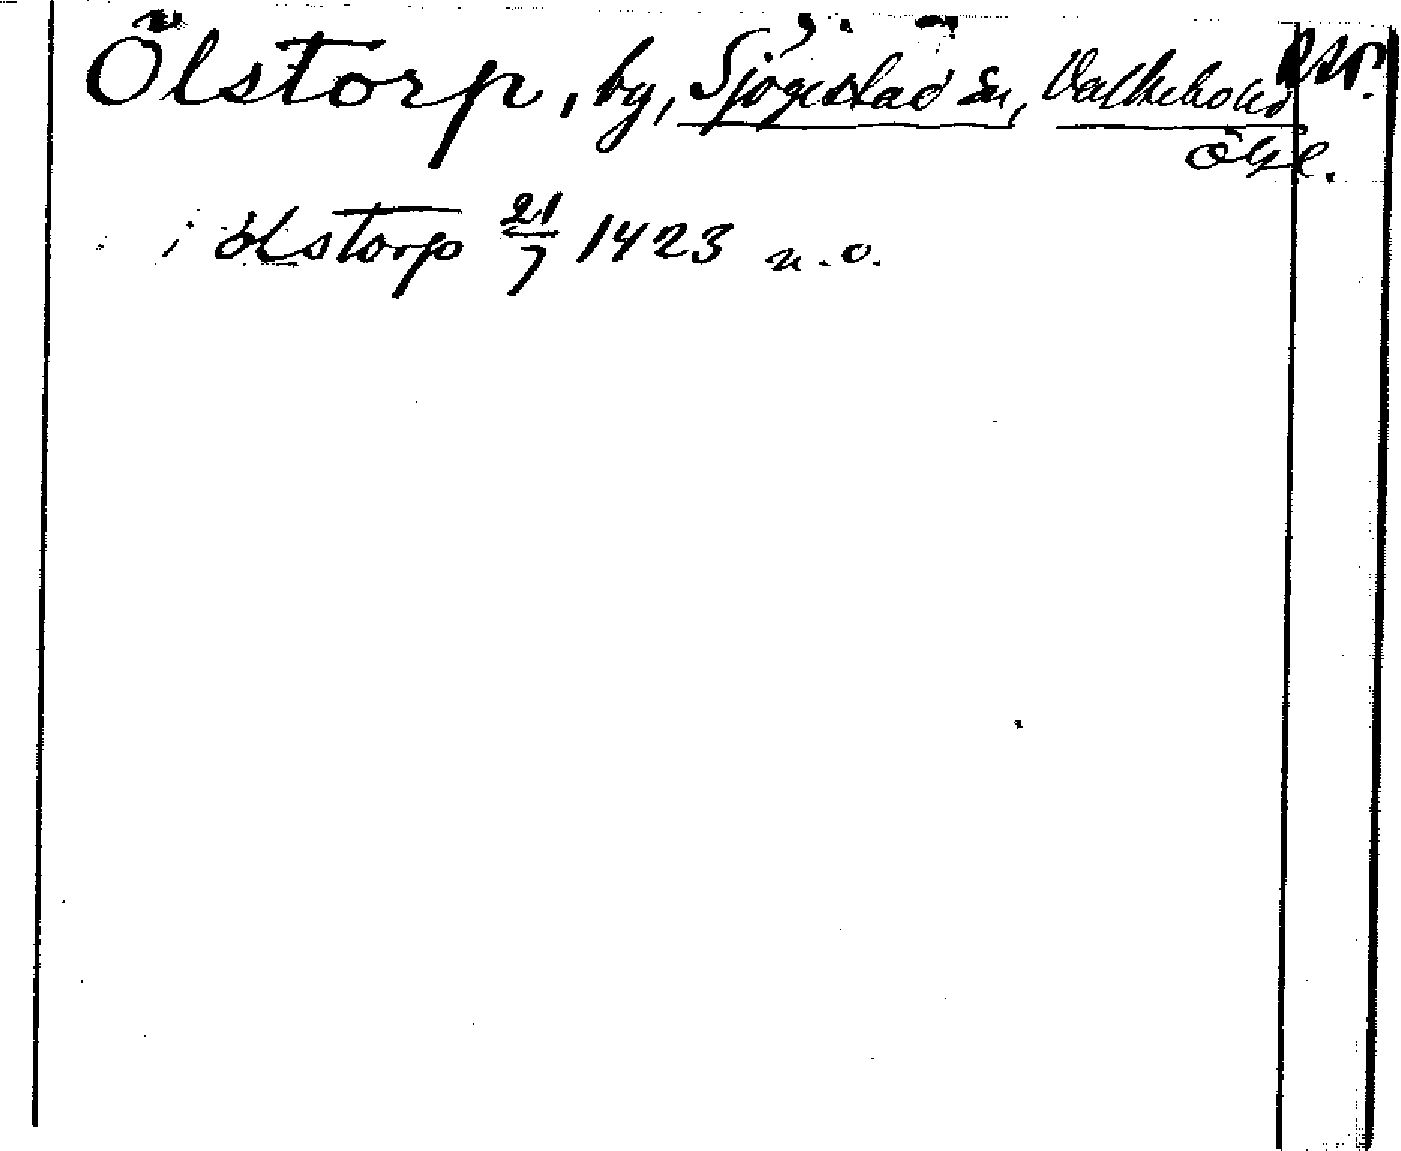 Ölstorp, by, Sjögestad sn, Valkebo hd
Ögl.
i ølstorp 21/7 1423 n.o.